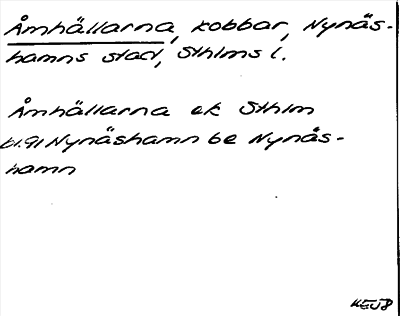 Åmhällarna, kobbar, Nynäs-
hamns stad, Sthlms l.
Åmhällarna ek Sthlm
bl.91 Nynäshamn be Nynås-
hamn